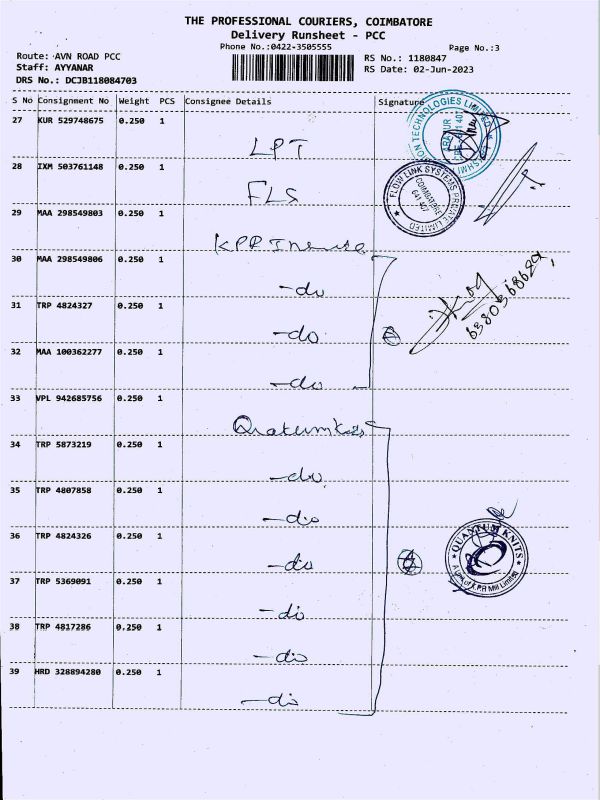 THE PROFESSIONAL COURIERS, COIMBATORE
Delivery Runsheet - PCC
Phone No.:0422-3505555
Page No.:3
Route: AVN ROAD PCC
RS No.: 1180847
Staff: AYYANAR
RS Date: 02-Jun-2023
DRS No.: DCJB118084703
S No Consignment No Weight PCS Consignee Details Signature
27 KUR 529748675 0.250 1
LPT
28 IXM 503761148 0.250 1
FLS
FLOW LINK SYSTEMS PRIVATE LIMITED
COIMBATORE
641 407
29 MAA 298549803 0.250 1
KPR
30 MAA 298549806 0.250 1
-do
31 TRP 4824327 0.250 1
-do
32 MAA 100362277 0.250 1
-do
33 VPL 942685756 0.250 1
34 TRP 5873219 0.250 1
-do
35 TRP 4807858 0.250 1
-do
36 TRP 4824326 0.250 1
-do
QUANTUM KNITS
37 TRP 5369091 0.250 1
-do
38 TRP 4817286 0.250 1
-do
39 HRD 328894280 0.250 1
-do